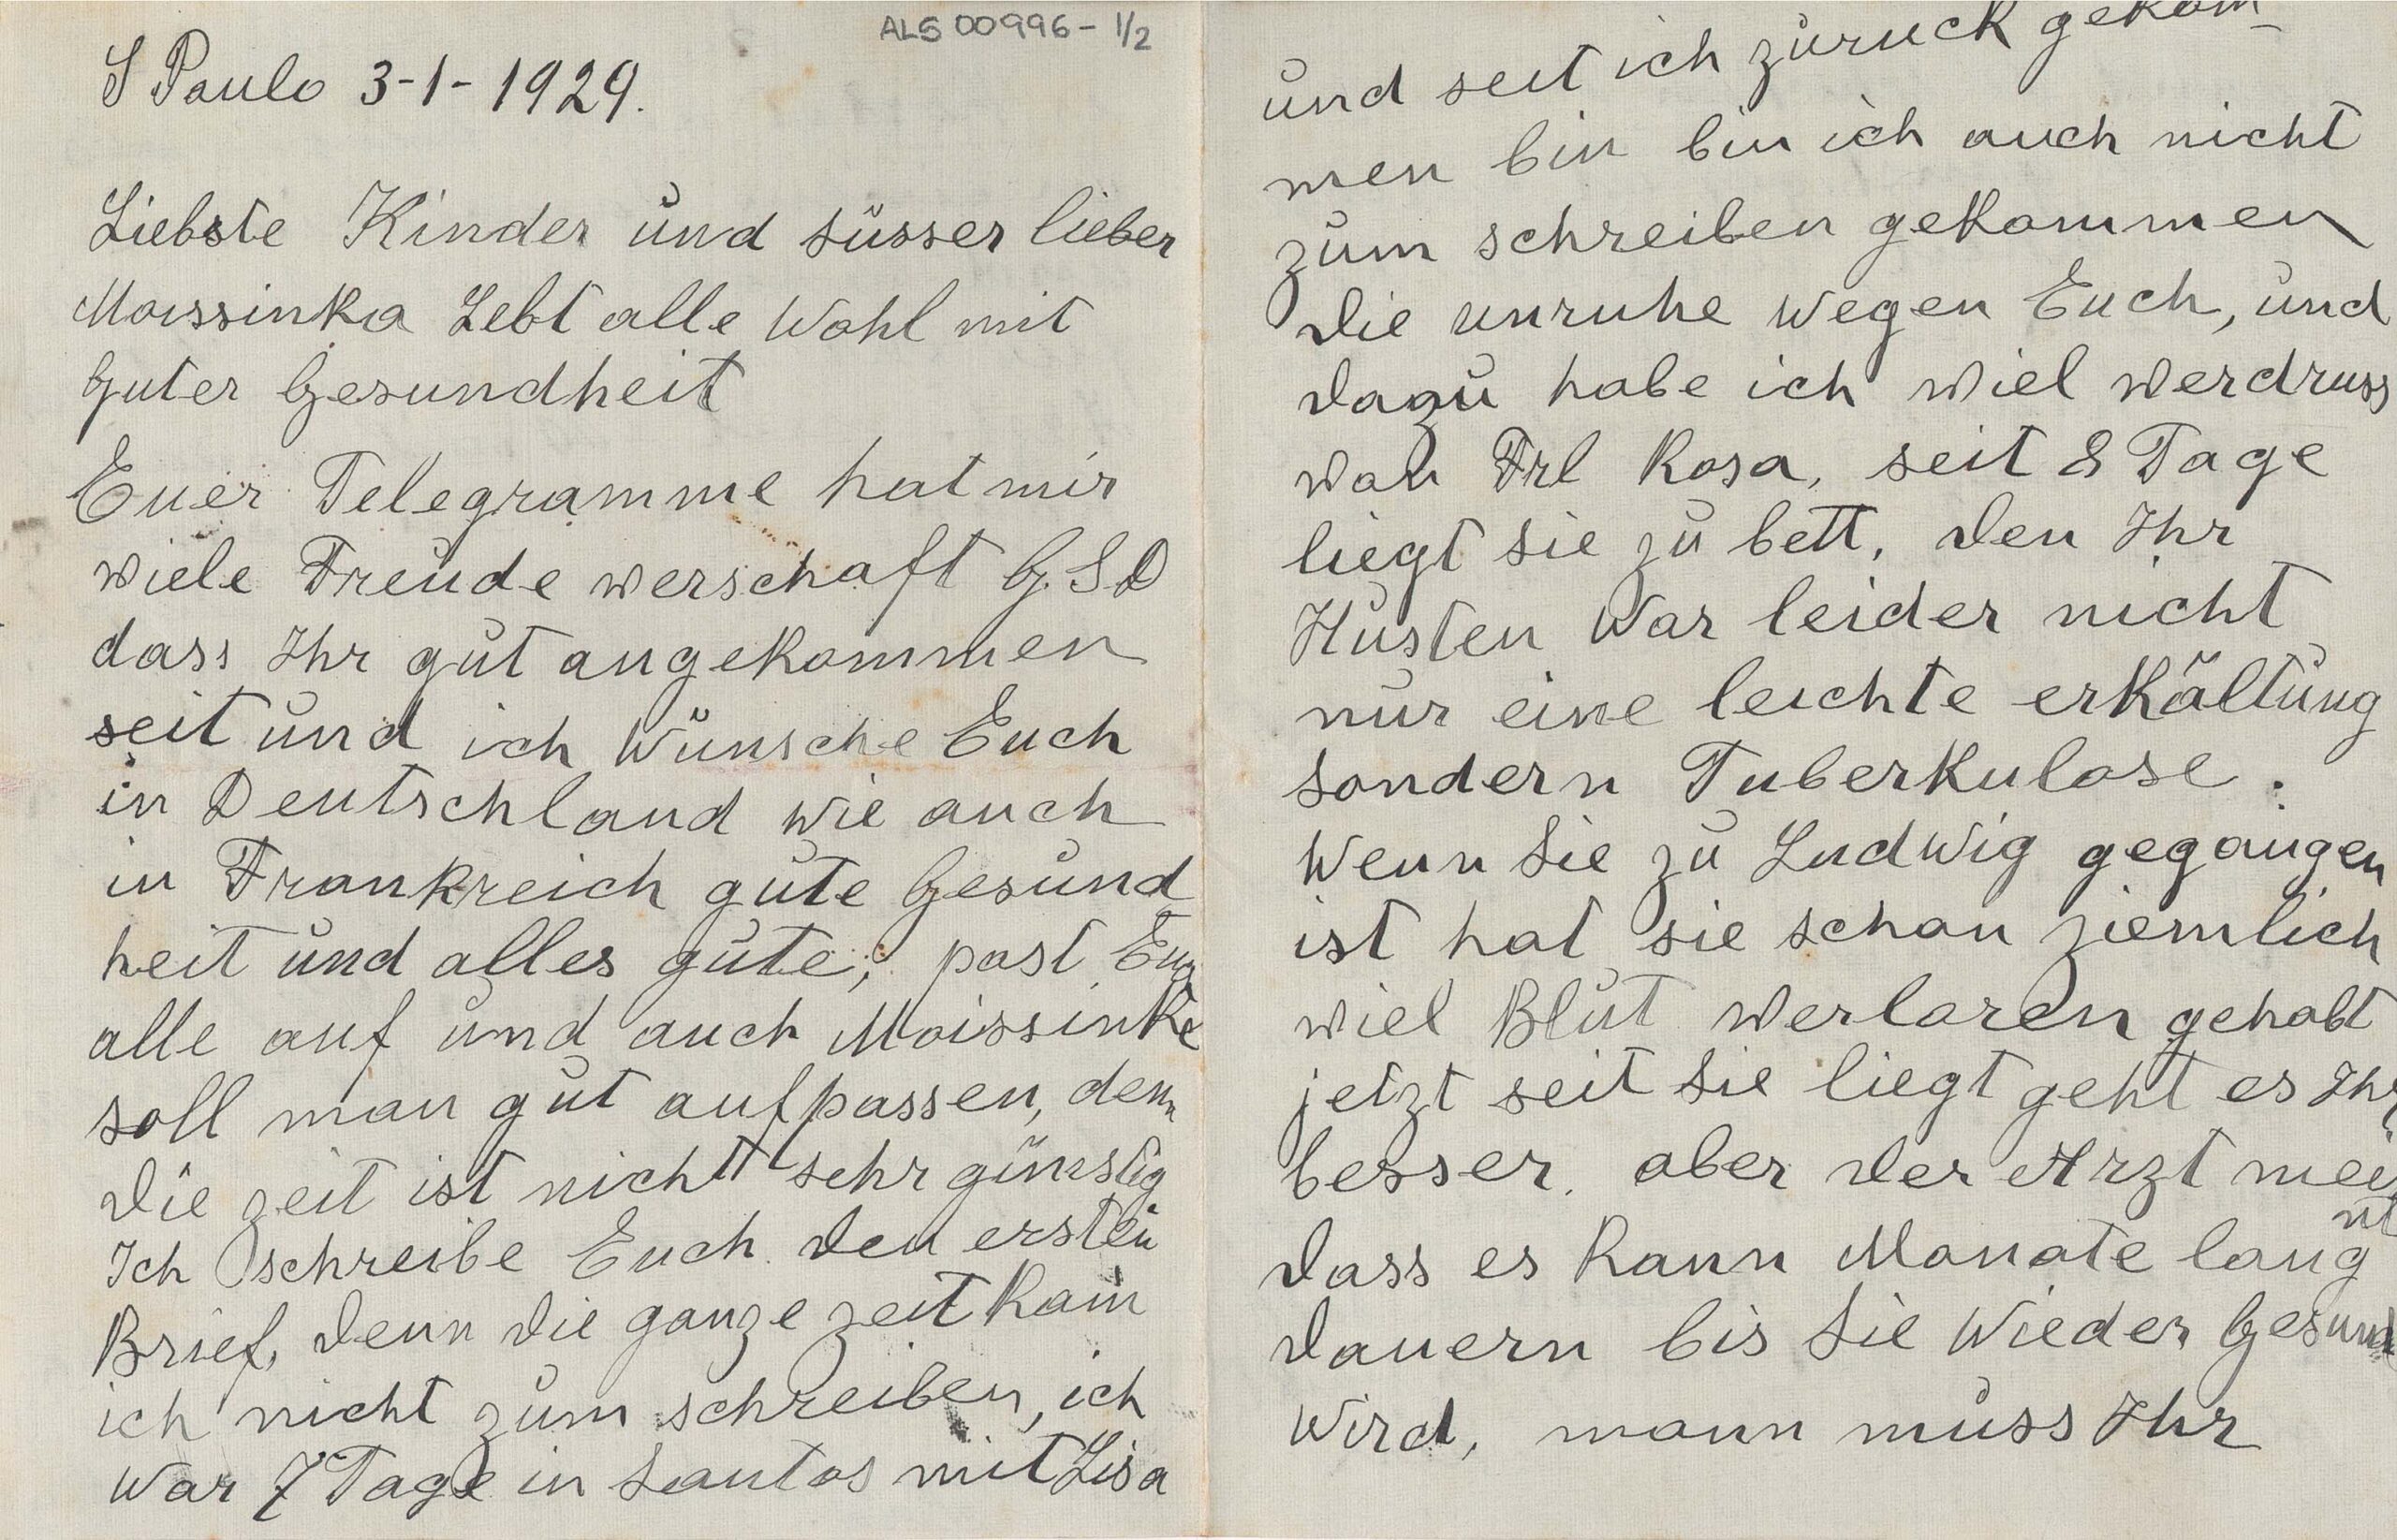 ALS 00996 - 1/2
S Paulo 3-1-1929.
Liebste Kinder und süsser lieber
Moissinka Lebt alle Wohl mit
Guter Gesundheit
Euer Telegramme hat mir
wiele Freude werschaft G.S.D
dass Ihr gut angekommen
seit und ich Wünsche Euch
in Deutschland wie auch
in Frankreich gute Gesund
heit und alles gute; past Euch
alle auf und auch Moissinke
soll man gut aufpassen, denn
Die zeit ist nicht sehr günstig
Ich schreibe Euch den ersten
Brief, Denn Die ganze zeit kam
ich nicht zum schreiben, ich
War 7 Tage in Santos mit Lisa
und seit ich zurück gekom-
men bin bin ich auch nicht
zum schreiben gekommen
Die unruhe wegen Euch, und
Dazu habe ich wiel werdruss
won Frl Rosa, seit 8 Tage
liegt Sie zu bett, Den Ihr
Husten War leider nicht
nur eine leichte erkältung
sondern Tuberkulose.
Wenn Sie zu Ludwig gegangen
ist hat sie schon ziemlich
wiel Blut werloren gehabt
jetzt seit Sie liegt geht es Ihr
besser. aber Der Arzt mei
nt
Dass es kann Monate lang
Dauern bis Sie Wieder Gesund
Wird, mann muss Ihr